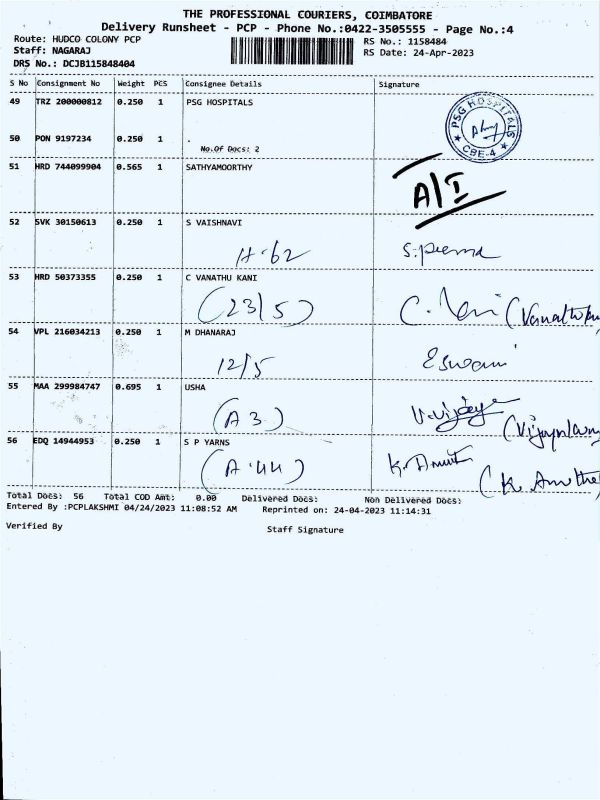 THE PROFESSIONAL COURIERS, COIMBATORE
Delivery Runsheet - PCP - Phone No.:0422-3505555 - Page No.:4
Route: HUDCO COLONY PCP RS No.: 1158484
Staff: NAGARAJ RS Date: 24-Apr-2023
DRS No.: DCJB115848404
S No Consignment No Weight PCS Consignee Details Signature
49 TRZ 200000812 0.250 1 PSG HOSPITALS
PSG HOSPITALS
★ CBE-4 ★
50 PON 9197234 0.250 1 .
No.Of Docs: 2
51 HRD 744099904 0.565 1 SATHYAMOORTHY
A/I
52 SVK 30150613 0.250 1 S VAISHNAVI
H-62 S.prema
53 HRD 50373355 0.250 1 C VANATHU KANI
(23/5) C.
54 VPL 216034213 0.250 1 M DHANARAJ
12/5 Eswari
55 MAA 299984747 0.695 1 USHA
(A3)
56 EDQ 14944953 0.250 1 S P YARNS
(A-44) K.
Total Docs: 56 Total COD Amt: 0.00 Delivered Docs: Non Delivered Docs:
Entered By :PCPLAKSHMI 04/24/2023 11:08:52 AM Reprinted on: 24-04-2023 11:14:31
Verified By Staff Signature